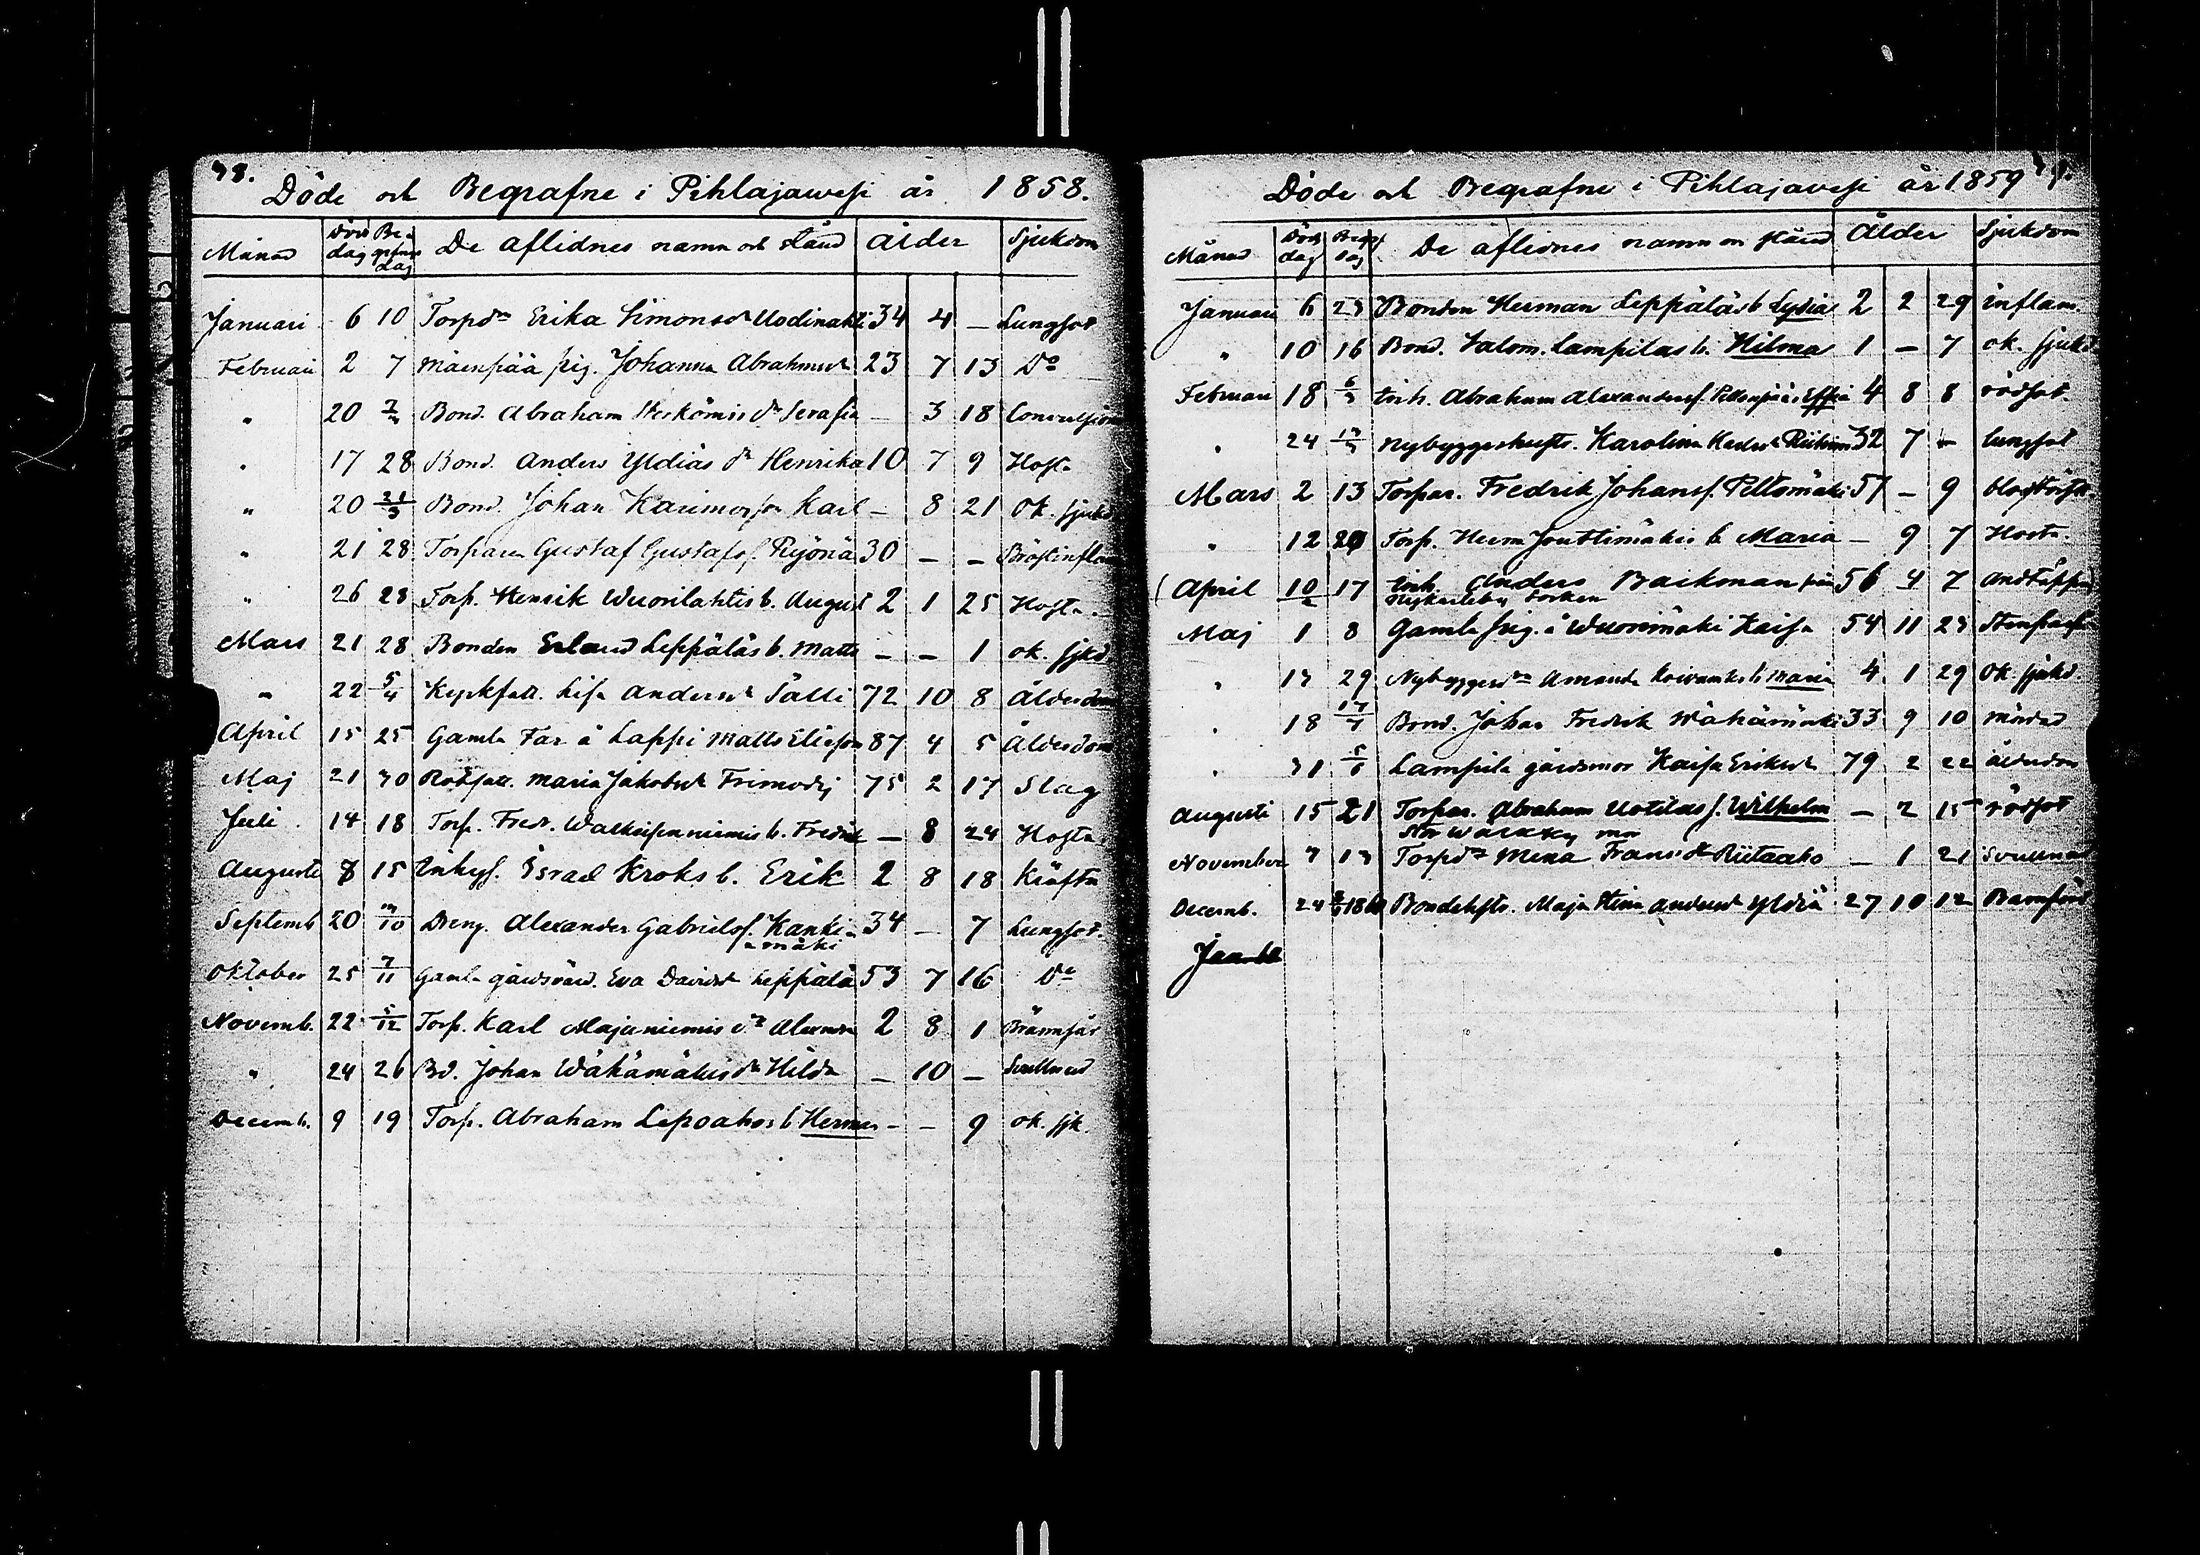 38.
Döde och Begrafne i Pihlajawesi år 1858.
Månad Död dag Be- grafn dag De aflidnes namn och stånd ålder Sjukdom
Januari 6 10 Torpd:r Erika Simonsd:r Uodinahti 34 4 — Lungsot
Februari 2 7 Mäenpää pig. Johanna Abrahmsd:r 23 7 13 D:o
" 20 7/3 Bond. Abraham d:r Serafia — 3 18 Convulsion
" 17 28 Bond. Anders Yldiäs d:r Henrika 10 7 9 Hosta
" 20 21/3 Bond. Johan Karimos son Karl — 8 21 Ok. sjukd
" 21 28 Torparen Gustaf Gustafss. Ryönä 30 — — Bröstinflam
" 26 28 Torp. Henrik Wuorilahtis b. August 2 1 25 Hosta.
Mars 21 28 Bonden Erland Leppäläs b. Matts — — 1 ok. sjkd.
" 22 5/4 Kyrkfatt. Lisa Andersd:r Sälli 72 10 8 Ålderdom
April 15 25 Gamla Far å Lappi Matts Eliasson 87 4 5 Ålderdom
Maj 21 30 Rotefatt. Maria Jakobsd:r Frimodig 75 2 17 Slag
Juli 14 18 Torp. Fredr. b. Fredrik — 8 24 Hosta
Augusti 8 15 Inhys. Israel Kroks b. Erik 2 8 18 Kräfta
Septemb 20 3/10 Dreng. Alexander Gabrielss. Kanki- 34 — 7 Lungsot.
mäki
Oktober 25 7/11 Gamla gårdsvärd. Eva Davidsd:r Leppälä 53 7 16 D:o
Novemb. 22 5/12 Torp. Karl Majaniemis d:r Alexandra 2 8 1 Brännfår
" 24 26 Bd. Johan Wähämäkis d:r Hilda — 10 — Svullnad
Decemb. 9 19 Torp. Abraham Lepoahos b Herman — — 9 ok. sjk.
Döde och Begrafne i Pihlajavesi år 1859
Månad Död dag Begr dag De aflidnes namn och stånd Ålder Sjukdom
Januari 6 23 Bonden Herman Leppäläs b Lydia 2 2 29 inflam.
" 10 16 Bond. Salom. Lampilas b. Hilma 1 — 7 ok. sjukd
Februari 18 6/3 Inh. Abraham Alexanderss. Effia 4 8 8 rödsot.
" 24 13/3 Nybyggeshustr. Karolina 32 7 — lungsot
Mars 2 13 Torpar. Fredrik Johanss. Peltomäki 57 — 9
" 12 20 Torp. Herm Jouttimäkis b Maria — 9 7 Hosta.
April 10/2 17 Inh. Anders Backman från 56 4 7 andtäppa
Nykarleby socken
Maj 1 8 Gamla pig. å Wuorimäki Kaisa 54 11 23 Stenpassion
" 13 29 Nybyggesd:r Amanda Koivumäkis b Maria 4 1 29 Ok. sjukd.
" 18 17/7 Bond. Johan Fredrik Wähämäki 33 9 10 Mördad
" 31 5/6 Lampila gårdsmor Kaisa Eriksd:r 79 2 22 ålderdom
Augusti 15 21 Torpar. Abraham Uotilas s. Wilhelm — 2 15 rödsot
November 7 13 Torpd:r Mina Fransd:r Riitaaho — 1 21 Svullnad
Decemb. 24 Bondehustr. Maja Stina Andersd:r Yldiä 27 10 12 Barnsörd